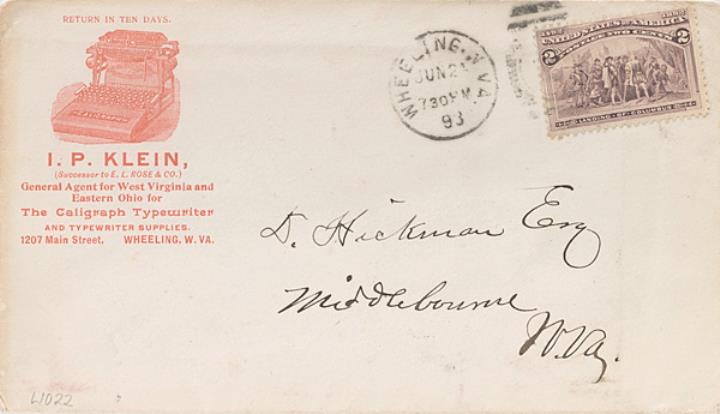 RETURN IN TEN DAYS.
I. P. KLEIN,
(Successor to E. L. ROSE & CO.)
General Agent for West Virginia and
Eastern Ohio for
The Caligraph Typewriter
AND TYPEWRITER SUPPLIES.
1207 Main Street, WHEELING, W. VA.
WHEELING, W. VA.
JUN 2
730PM
93
1492 1892
UNITED STATES OF AMERICA
POSTAGE TWO CENTS
2 2
LANDING OF COLUMBUS
D. Hickman Esq
Middlebourne
W. Va.
L1022